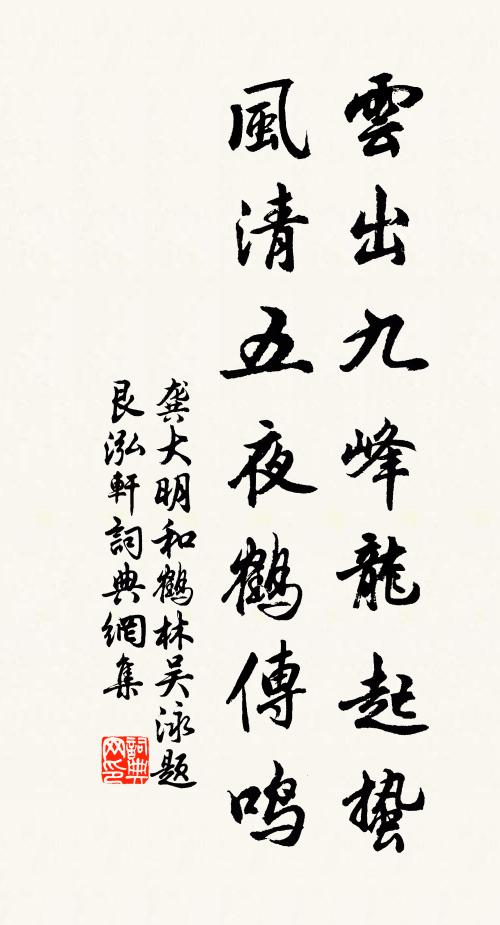 雲出九峰龍起蟄
風清五夜鶴傳鳴
龔大明和鶴林吴泳题
艮泓軒詞典網集
詞典网印